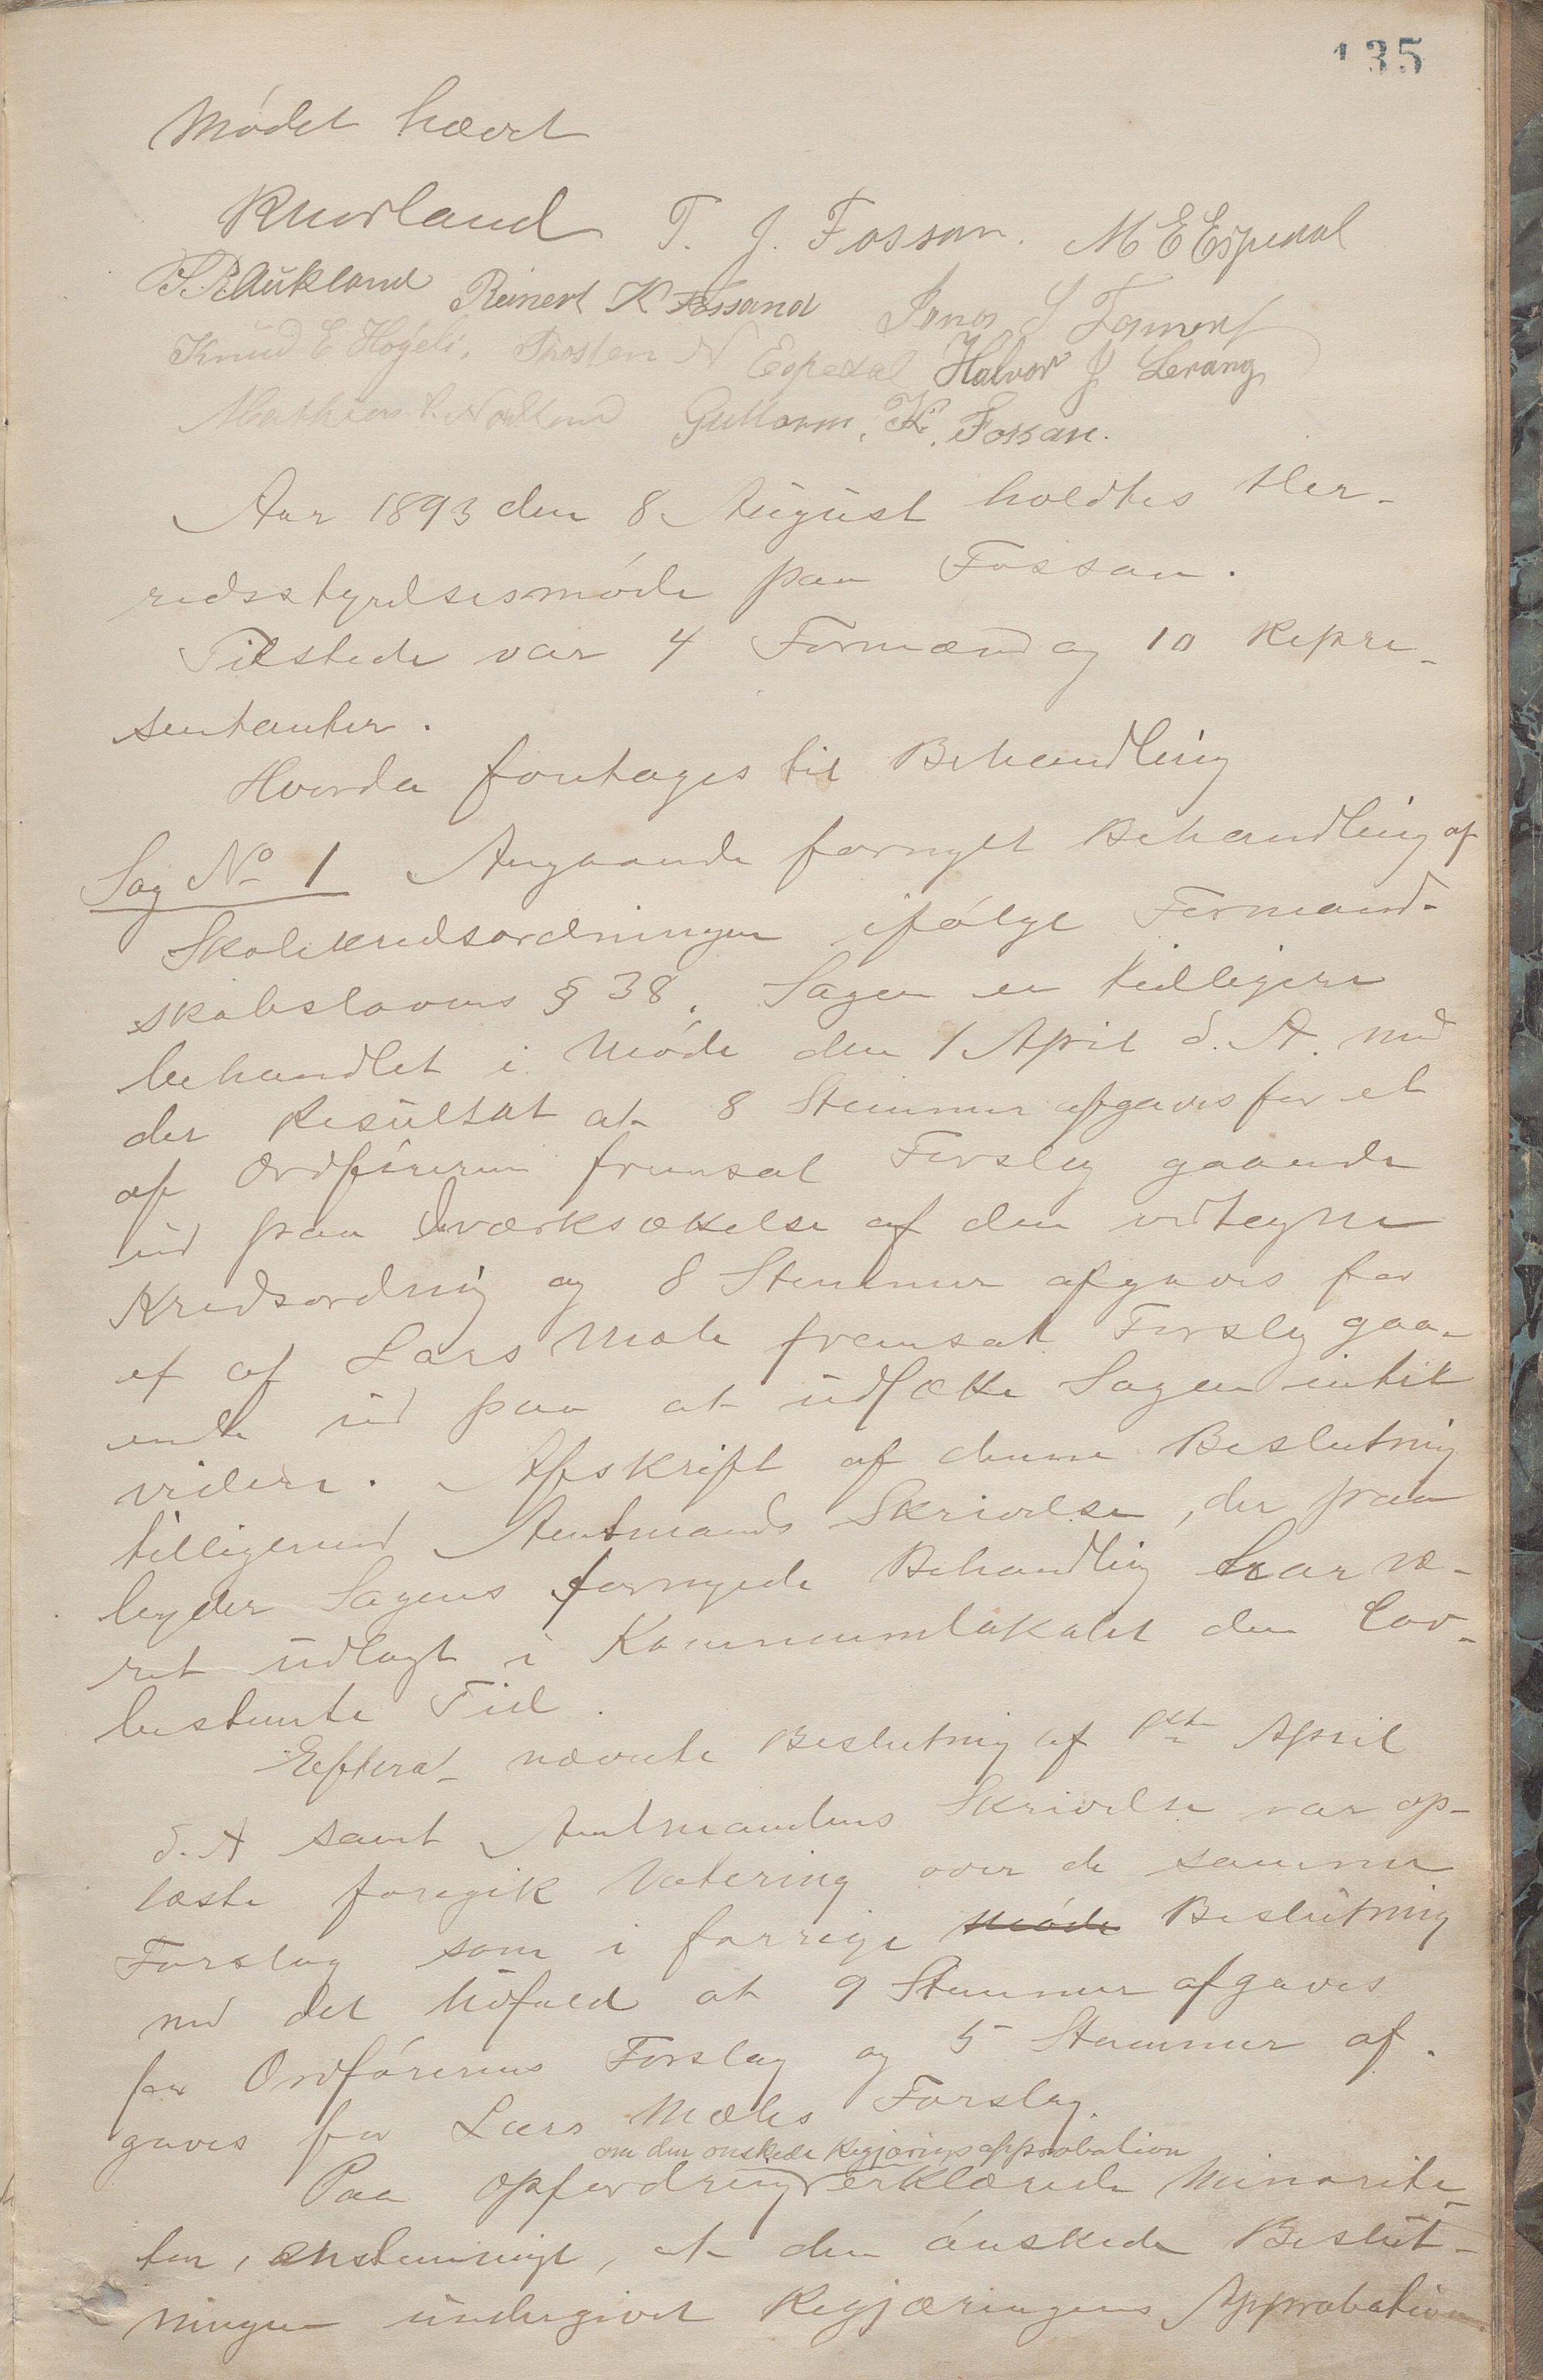 135
Mødet hævet
T. J. Fossan. M E Espedal
Aukland Reinert K Fossand Jonas S
Knud E Høgeli. Thosten N Espedal Halvor J Lerang
Guttorm. K. Fossan.
Aar 1893 den 8 August holdtes Her-
redsstyrelsesmøde paa Fossan.
Tilstede var 4 Formænd og 10 Repre-
sentanter.
Hvorda foretages til Behandling
Sag No 1 Angaaende fornyet Behandling af
Skolekredsordningen ifølge Formand-
skabslovens § 38. Sagen er tidligere
behandlet i Møde den 1 April d. A. med
det Resultat at 8 Stemmer afgaves for et
af Ordføreren fremsat Forslag gaaende
ud paa Iværksættelse af den vedtagne
Kredsordning og 8 Stemmer afgaves for
et af Lars Mæle fremsat Forslag gaa-
ende ud paa at udsætte Sagen indtil
videre. Afskrift af denne Beslutning
tilligemed Amtmands Skrivelse, der paa-
lyder Sagens fornyede Behandling har væ-
ret udlagt i Kommunelokalet den lov-
bestemte Tid.
Efterat nævnte Beslutning af 1ste April
d. A samt Amtmandens Skrivelse var op-
læste foregik Votering over de samme
Forslag som i forrige Møde Beslutning
med det Udfald at 9 Stemmer afgaves
for Ordførerens Forslag og 5 Stemmer af-
gaves for Lars Mæles Forslag.
om den ønskede Regjerings approbation
Paa Opfordring erklærede Minorite-
ten, enstemmigt, at den ønskede Beslut-
ningen undergivet Regjæringens Approbation